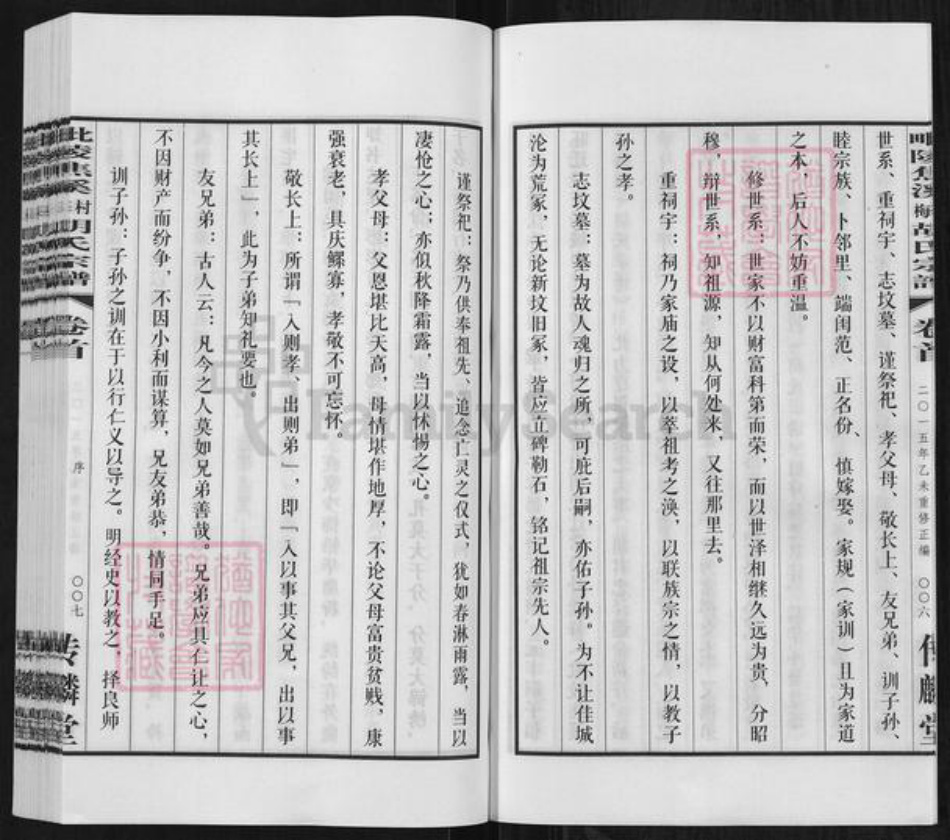 毗陵焦溪 梅村 胡氏宗谱 卷首 二〇一五年乙未重修正编 〇〇六 传麟堂
世系、重祠宇、志坟墓、谨祭祀、孝父母、敬长上、友兄弟、训子孙、
睦宗族、卜邻里、端闺范、正名份、慎嫁娶。家规（家训）且为家道
之本，后人不妨重温。
修世系：世家不以财富科第而荣，而以世泽相继久远为贵、分昭
穆，辩世系，知祖源，知从何处来，又往那里去。
重祠宇：祠乃家庙之设，以萃祖考之涣，以联族宗之情，以教子
孙之孝。
志坟墓：墓为故人魂归之所，可庇后嗣，亦佑子孙。为不让佳城
沦为荒冢，无论新坟旧冢，皆应立碑勒石，铭记祖宗先人。
谨祭祀：祭乃供奉祖先、追念亡灵之仪式，犹如春淋雨露，当以
凄怆之心；亦似秋降霜露，当以怵惕之心。
孝父母：父恩堪比天高，母情堪作地厚，不论父母富贵贫贱，康
强衰老，具庆鳏寡，孝敬不可忘怀。
敬长上：所谓「入则孝、出则弟」，即「入以事其父兄，出以事
其长上」，此为子弟知礼要也。
友兄弟：古人云：凡今之人莫如兄弟善哉。兄弟应具仁让之心，
不因财产而纷争，不因小利而谋算，兄友弟恭，情同手足。
训子孙：子孙之训在于以行仁义以导之。明经史以教之，择良师
毗陵焦溪 村 胡氏宗谱 卷首 序 〇〇七 传麟堂
FamilySearch